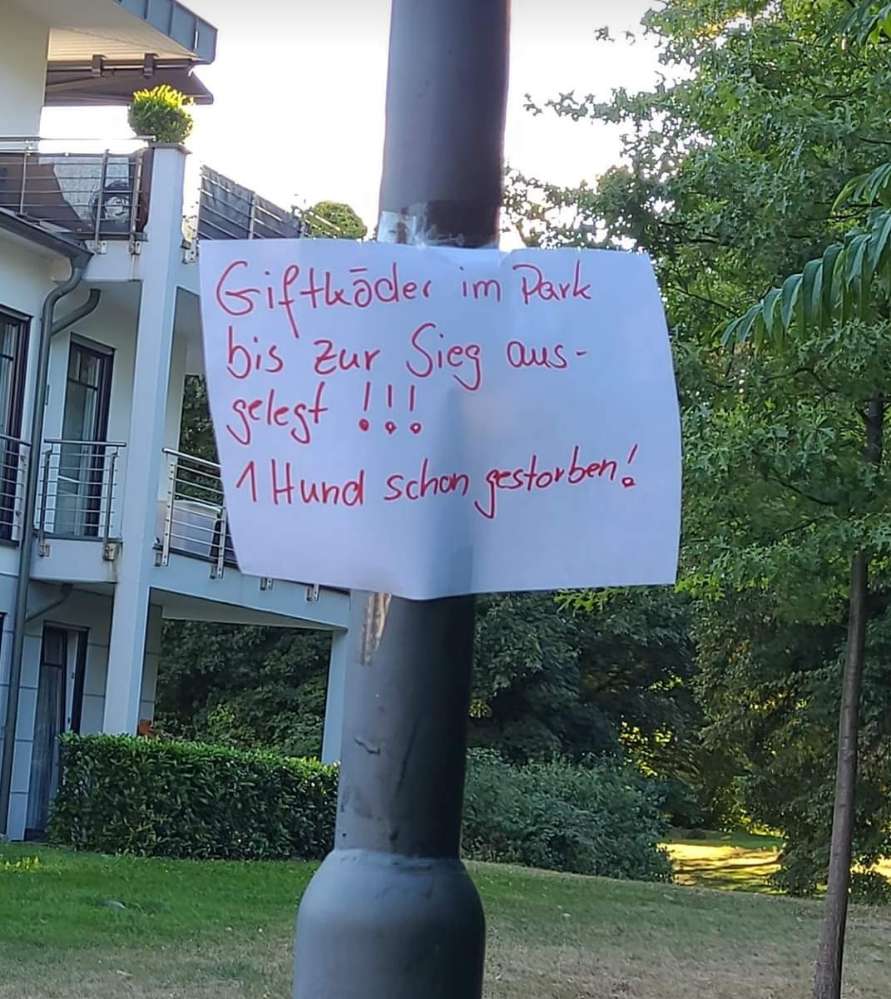 Giftköder im Park
bis zur Sieg aus-
gelegt !!!
1 Hund schon gestorben!